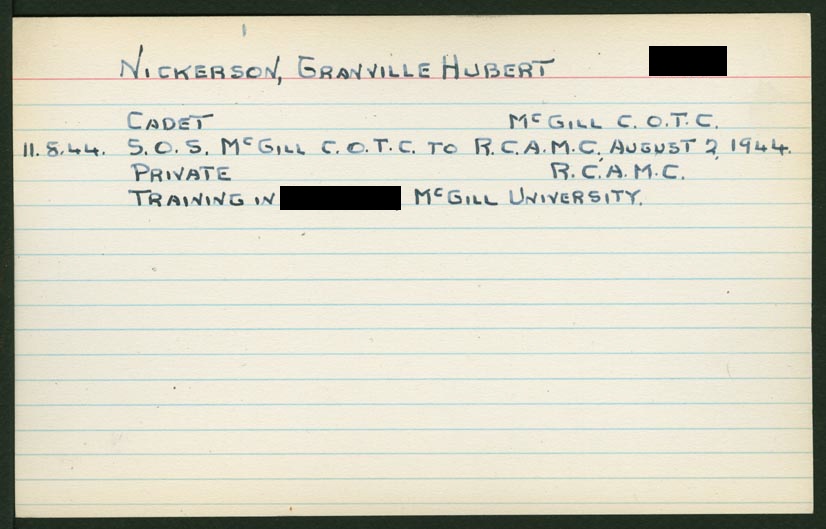 NICKERSON, GRANVILLE HUBERT
CADET McGILL C.O.T.C.
11.8.44. S.O.S. McGILL C.O.T.C. TO R.C.A.M.C. AUGUST 2, 1944.
PRIVATE R.C.A.M.C.
TRAINING IN McGILL UNIVERSITY.